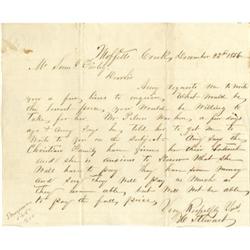 Moffetts Creek, December 22d 1856
Mr. Sam C.
Dear Sir
Amy requests me to write
you a few lines to inquire, What would be
the lowest price, you would be Willing to
take, for her. Mr Wilson was here, a few days
ago & Amy Says he told her to get me to
Write to you on the Subject. Amy Says the
Christian Family have given her their
and she is anxious to Know What She
Will have to pay They have some money
and they Will pay as Much as
They are able, but Will not be able
to pay the full price
Very Respectfully Yours
M Stewart